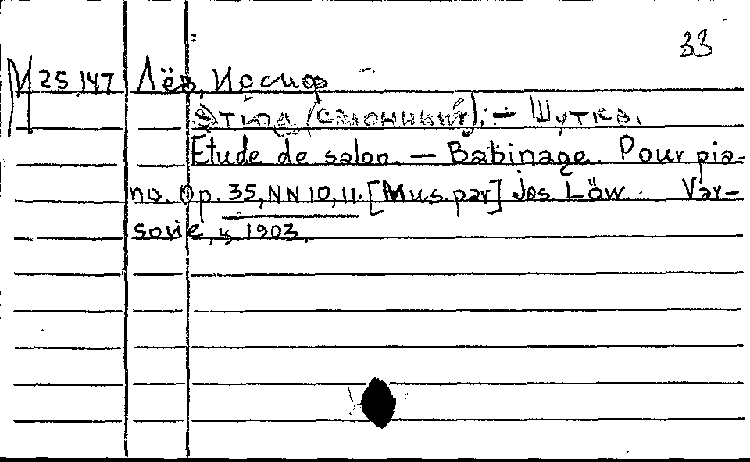 33
М 25 147 Лёв, Иосиф
Этюд (салонный). — Шутка.
Etude de salon. — Babinage. Pour pia-
no. Op. 35, NN 10, 11. [Mus. par] Jos Löw. Var-
sovie, 1903.